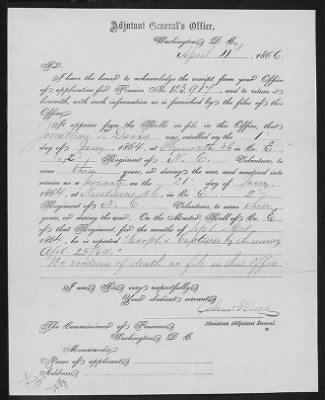 Adjutant General's Office,
Washington, D. C.
April 11, 1866
Sir:
I have the honor to acknowledge the receipt from your Office
of application for Pension No. 122,917, and to return it
herewith, with such information as is furnished by the files of this
Office.
It appears from the Rolls on file in this Office, that
Davis was enrolled on the 1
day of Jany, 1864, at Plymouth in Co. E
2 Regiment of N. C. Volunteers, to
serve three years, or during the war, and mustered into
service as a Private on the 21 day of Jany,
1864, at in Co. E
Regiment of N. C. Volunteers, to serve three
years, or during the war. On the Muster Roll of Co. E
of that Regiment, for the months of
1864, he is reported Captured by the enemy
Apl. 25/64."
No evidence of death on file in this Office
I am, Sir, very respectfully,
Your obedient servant,
Assistant Adjutant General.
The Commissioner of Pensions,
Washington, D. C.
Memoranda:
Name of applicant,
Address,